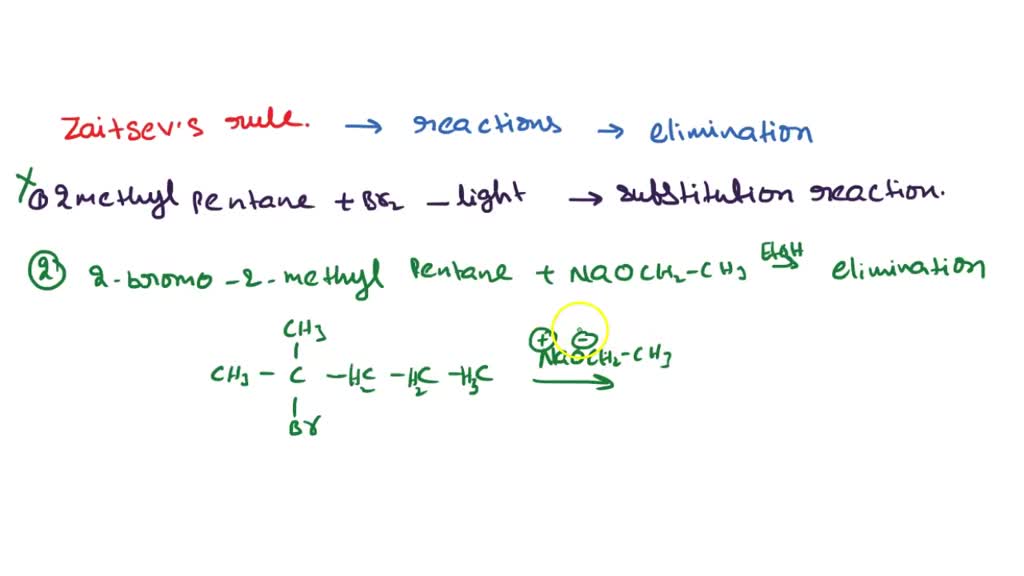 Zaitsev's rule. → reactions → elimination
X ① 2 methyl pentane + Br2 - light → substitution reaction.
② 2-bromo-2-methyl Pentane + NaOCH2-CH3 EtOH → elimination
CH3
CH3 - C - H2C - H2C - H3C
Br
⊕ ⊖
NaOCH2-CH3 →